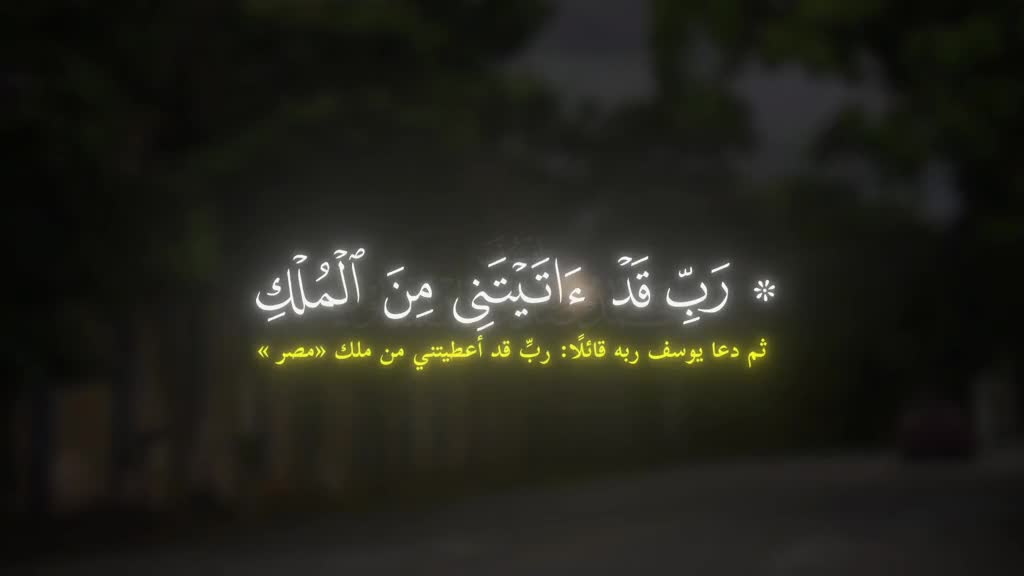 * رَبِّ قَدْ ءَاتَيْتَنِى مِنَ ٱلْمُلْكِ
ثم دعا يوسف ربه قائلًا: ربِّ قد أعطيتني من ملك «مصر »